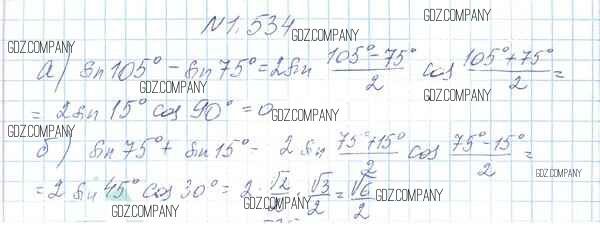 N 1.534
GDZ.COMPANY GDZ.COMPANY GDZ.COMPANY
а) sin 105° - sin 75° = 2 sin (105° - 75°)/2 cos (105° + 75°)/2 =
GDZ.COMPANY GDZ.COMPANY
= 2 sin 15° cos 90° = 0
GDZ.COMPANY GDZ.COMPANY
б) sin 75° + sin 15° - 2 sin (75° + 15°)/2 cos (75° - 15°)/2 =
GDZ.COMPANY
= 2 sin 45° cos 30° = 2 · √2/2 · √3/2 = √6/2
GDZ.COMPANY GDZ.COMPANY GDZ.COMPANY